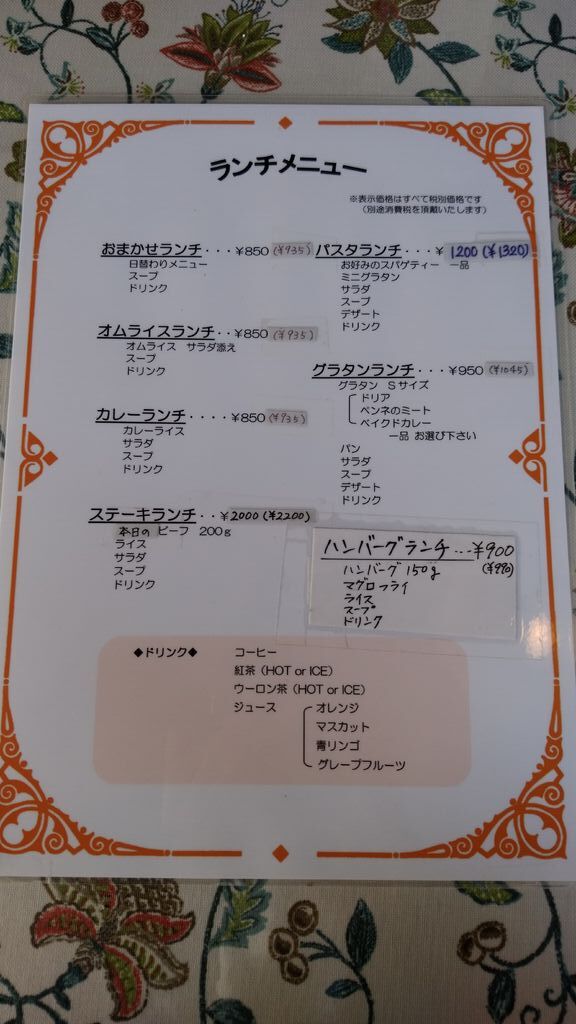 ランチメニュー
※表示価格はすべて税別価格です
(別途消費税を頂戴いたします)
おまかせランチ・・・¥850 (¥935)
日替わりメニュー
スープ
ドリンク
オムライスランチ・・¥850 (¥935)
オムライス サラダ添え
スープ
ドリンク
カレーランチ・・・・¥850 (¥935)
カレーライス
サラダ
スープ
ドリンク
ステーキランチ・・¥2000 (¥2200)
本日の ビーフ 200g
ライス
サラダ
スープ
ドリンク
パスタランチ・・・¥1200 (¥1320)
お好みのスパゲティー 一品
ミニグラタン
サラダ
スープ
デザート
ドリンク
グラタンランチ・・・¥950 (¥1045)
グラタン Sサイズ
ドリア
ペンネのミート
ベイクドカレー
一品 お選び下さい
パン
サラダ
スープ
デザート
ドリンク
ハンバーグランチ...¥900
(¥990)
ハンバーグ 150g
マグロフライ
ライス
スープ
ドリンク
◆ドリンク◆ コーヒー
紅茶(HOT or ICE)
ウーロン茶(HOT or ICE)
ジュース オレンジ
マスカット
青リンゴ
グレープフルーツ